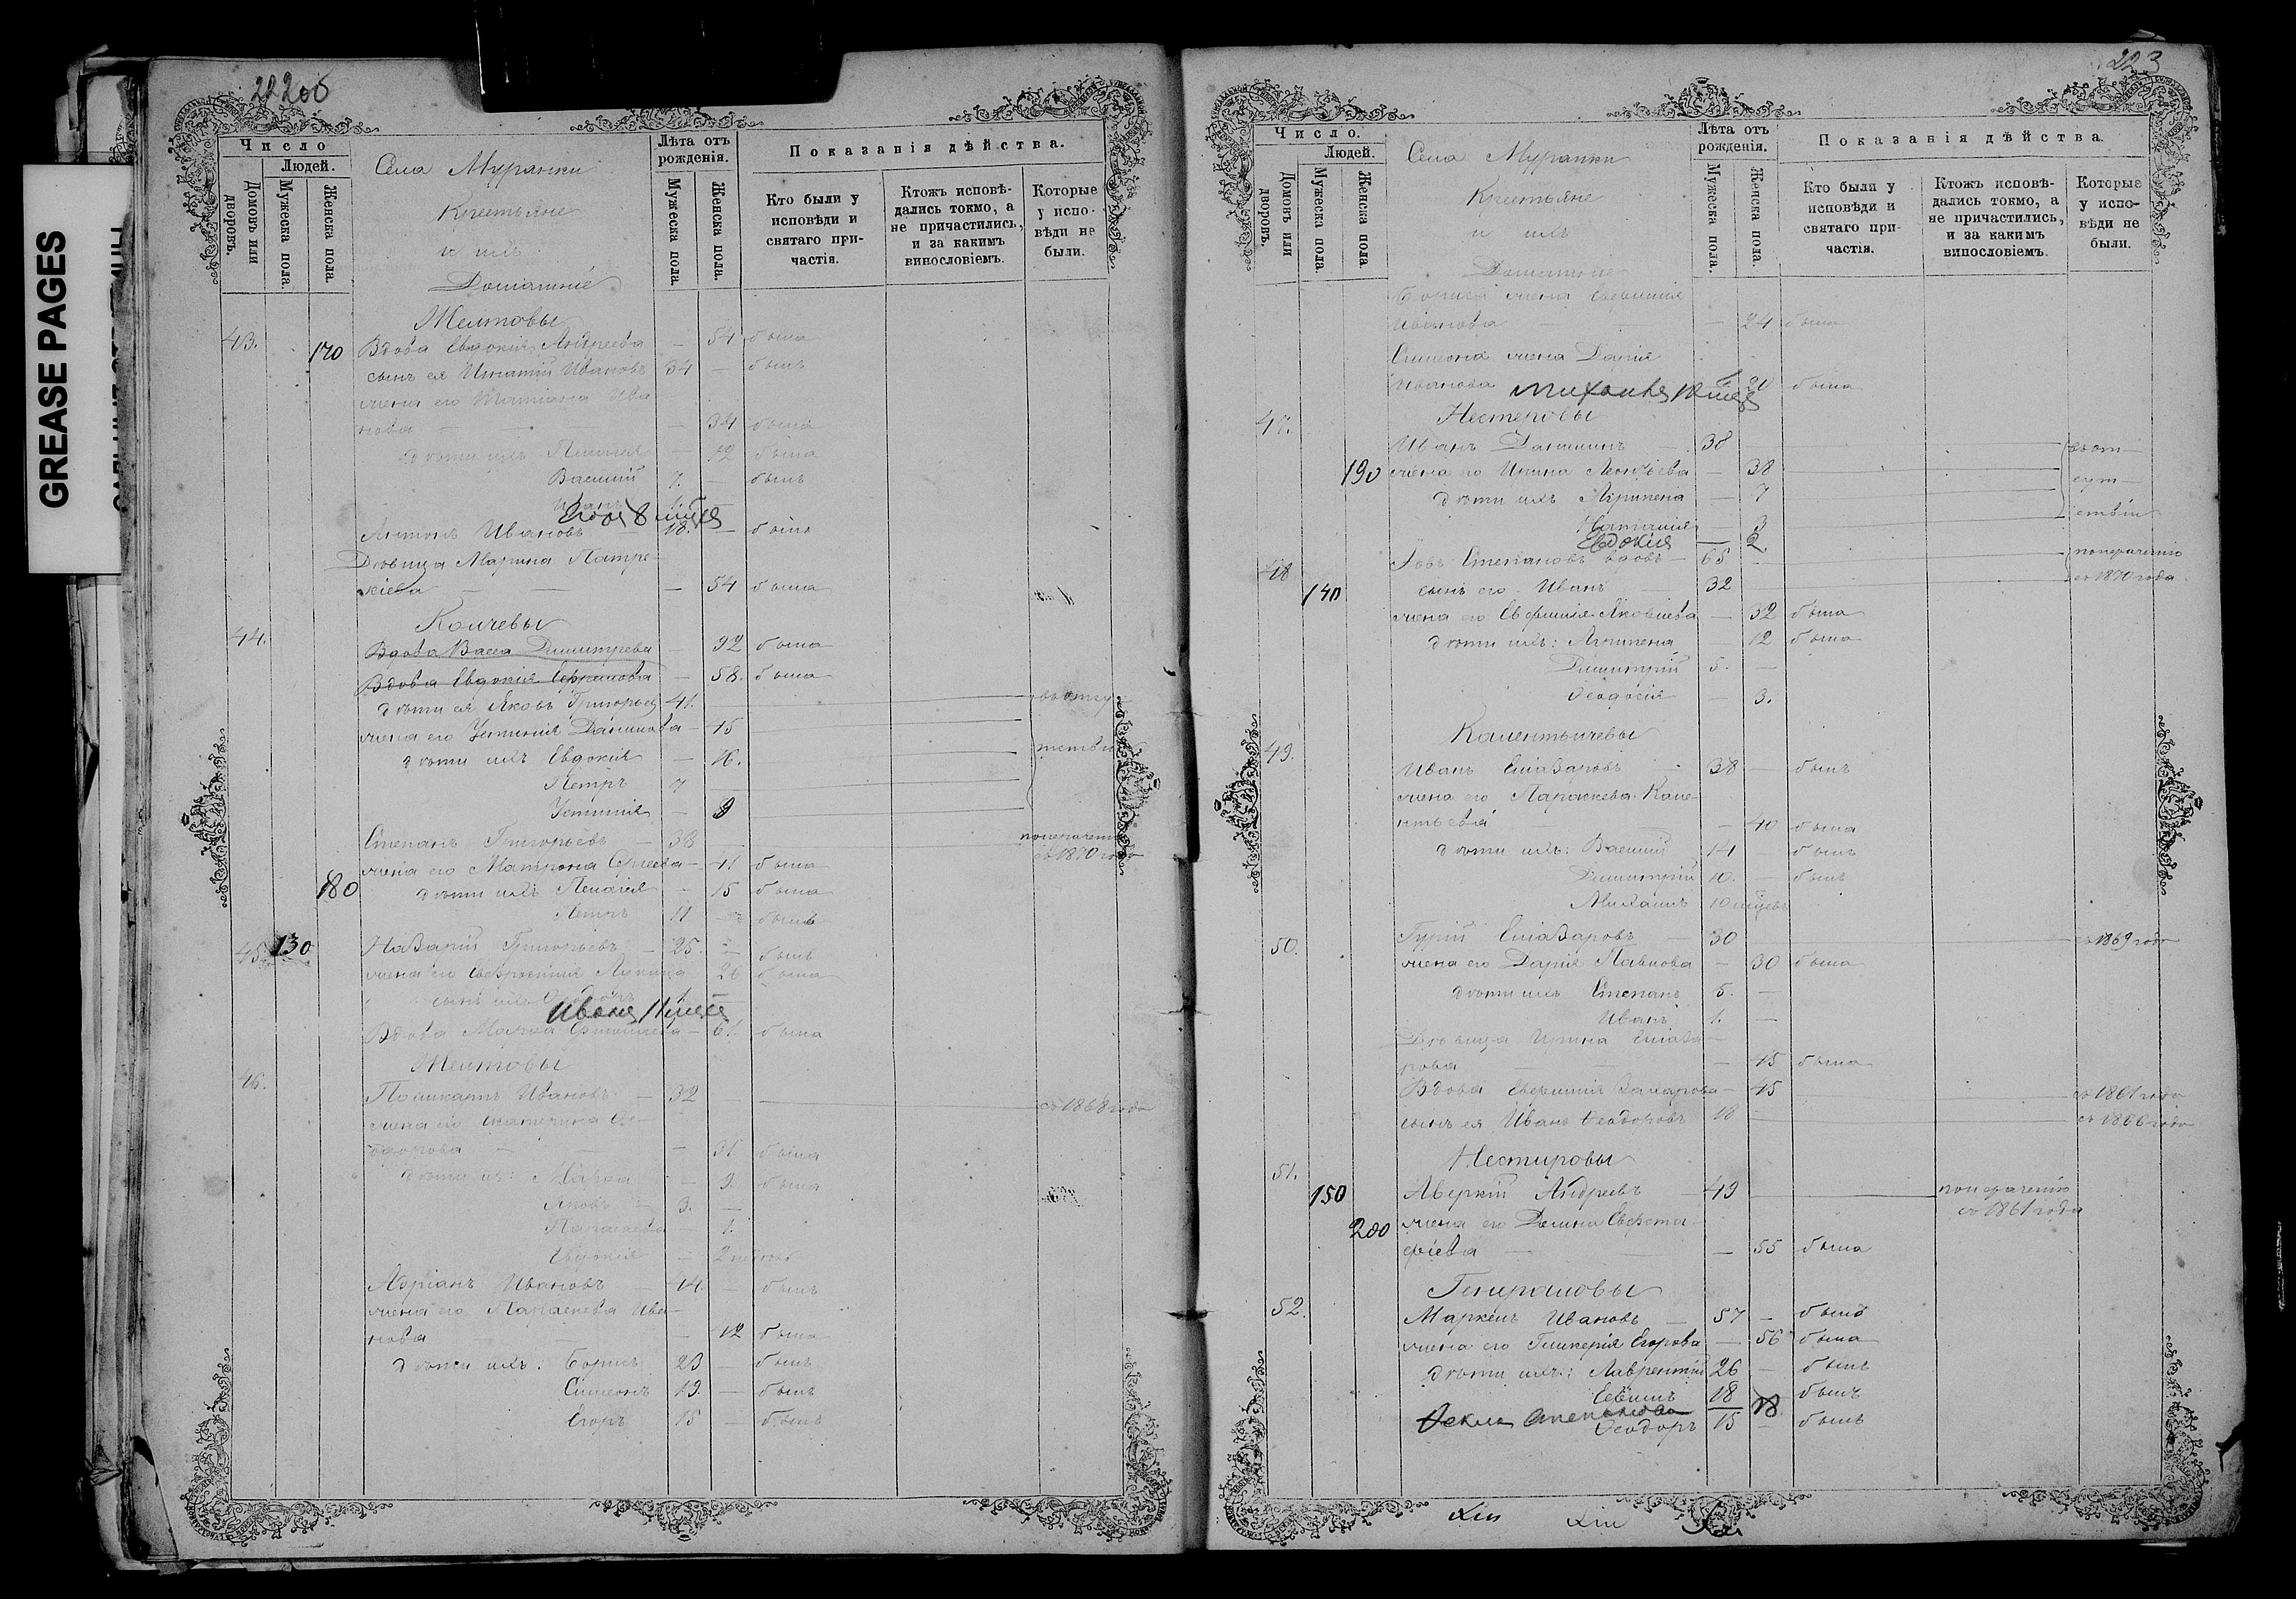 GREASE PAGES
222об
Число
Людей.
Домовъ или дворовъ.
Мужеска пола.
Женска пола.
Села Муранки
Крестьяне
и ихъ
Домашніе
Лѣта отъ рожденія.
Мужеска пола.
Женска пола.
Показанія дѣйства.
Кто были у исповѣди и святаго причастія.
Ктожъ исповѣдались токмо, а не причастились, и за какимъ винословіемъ.
Которые у исповѣди не были.
Желтовы
43. 170 Вдова Евдокія Андреева — 54 была
сынъ ея Игнатій Ивановъ 34 — былъ
жена его Татіана Ива-
нова — 34 была
дѣти ихъ Пелагія — 12 была
Василій 7. — былъ
Антонъ Ивановъ 18. — былъ
Дѣвица Марина Патре-
кіева — 54 была
44. Вдова Васса Димитріева — 92 была
Вдова Евдокія — 58. была
дѣти ея Яковъ Григорьевъ 41.
жена его Устинія Данилова — 45
дѣти ихъ Евдокія — 16.
Петръ 7
Устинія — 9
Степанъ Григорьевъ — 38 по нераченію
съ 1870 года
жена его Матрона Сергеева — 41 была
180 дѣти ихъ Пелагія — 15 была
Петръ 11 — былъ
45. 130 Назарій Григорьевъ — 25. — былъ
жена его Евфросинія — 26 была
Вдова Марѳа — 61. была
Желтовы
46. Ивановъ — 32 — съ 1868 года
жена его Екатерина Ѳе-
дорова — 31 была
дѣти ихъ: Марѳа — 9. была
Яковъ — 3. —
Параскева — 1.
Евдокія — 2 недѣль
Адріанъ Ивановъ 44. — былъ
жена его Параскева Ива-
нова — 42 была
дѣти ихъ: Борисъ 23 — былъ
Симеонъ 19. — былъ
Егоръ 15 — былъ
223
Число.
Людей.
Домовъ или дворовъ.
Мужеска пола
Женска пола.
Села Муранки
Крестьяне
и ихъ
Домашніе
Лѣта отъ рожденія.
Мужеска пола.
Женска пола.
Показанія дѣйства.
Кто были у исповѣди и святаго причастія.
Ктожъ исповѣдались токмо, а не причастились, и за какимъ винословіемъ.
Которые у исповѣди не были.
Бориса жена Евфимія
Иванова — 24 была
Симеона жена Дарія
Иванова — 20 была
47. Нестеровы
Иванъ Данилинъ 38
190 жена его Ирина Леонтьева — 38
дѣти ихъ Агрипена — 7
Наталія — 3
Евдокія — 2
48 Іовъ Степановъ вдовъ — 65 по нераченію
съ 1870 года
140 сынъ его Иванъ 32
жена его Евфимія Яковлева — 32 была
дѣти ихъ: Агрипена — 12 была
Димитрій 5. —
Ѳеодосія — 3.
Калентьичевы
49. Иванъ Елиазаровъ 38 — былъ
жена его Параскева Кале-
нтьева — 40 была
дѣти ихъ: Василій 14 — былъ
Димитрій 10. — былъ
Михаилъ 10 мѣсяцевъ
50. Гурій Елиазаровъ — 30 съ 1869 года
жена его Дарія Павлова — 30 была
дѣти ихъ Степанъ 5. —
Иванъ 1. —
Дѣвица Ирина Елиаза-
рова — 45 была
Вдова Евфимія Захарова — 45 съ 1861 года
сынъ ея Иванъ Ѳеодоровъ 18 съ 1866 года
Нестировы
51. 150 Аверкій Андреевъ — 49 по нераченію
съ 1861 года
200 жена его Евста-
фіева — 55 была
Генираловы
52. Маркелъ Ивановъ — 57 — былъ
жена его Гликерія Егорова — 56 была
дѣти ихъ: Лаврентій 26 — былъ
18 былъ
Ѳекла Степанова 18
Ѳеодоръ 15 — былъ